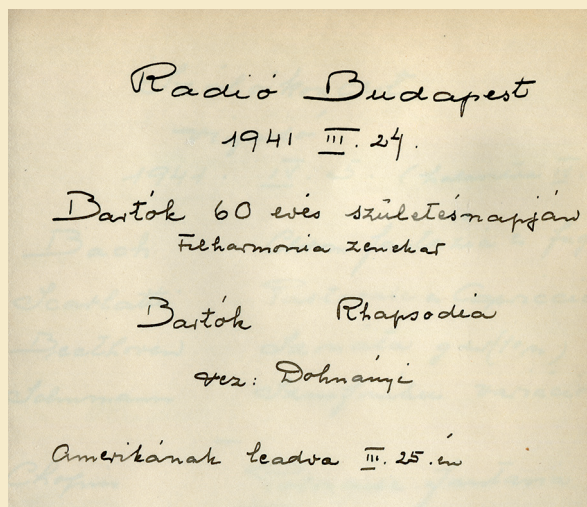 Radió Budapest
1941 III. 24.
Bartók 60 eves születésnapján
Filharmonia zenekar
Bartók Rhapsodia
vez: Dohnányi
Amerikának leadva III. 25.-én